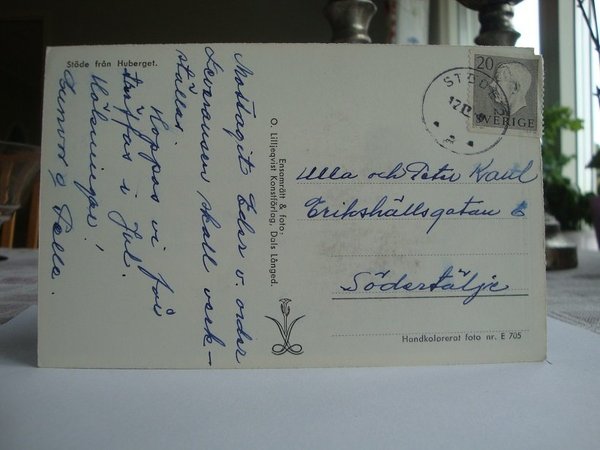 Stöde från Huberget.
Mottagit Eder v. order
Leveransen skall verk-
ställas.
Hoppas vi får
träffas i Jul.
Hälsningar!
Gunvor o Pelle.
Ensamrätt & foto:
O. Lilljeqvist Konstförlag, Dals Långed.
20
SVERIGE
STÖDE
Ulla och Peter Kaul
Erikshällsgatan
Södertälje
Handkolorerat foto nr. E 705